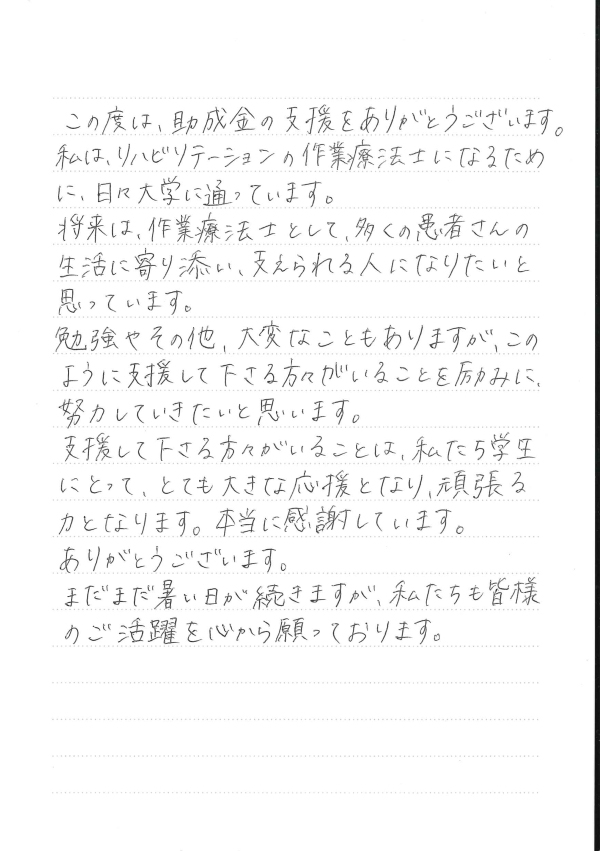 この度は、助成金の支援をありがとうございます。
私は、リハビリテーションの作業療法士になるため
に、日々大学に通っています。
将来は、作業療法士として、多くの患者さんの
生活に寄り添い、支えられる人になりたいと
思っています。
勉強やその他、大変なこともありますが、この
ように支援して下さる方々がいることを励みに、
努力していきたいと思います。
支援して下さる方々がいることは、私たち学生
にとって、とても大きな応援となり、頑張る
力となります。本当に感謝しています。
ありがとうございます。
まだまだ暑い日が続きますが、私たちも皆様
のご活躍を心から願っております。